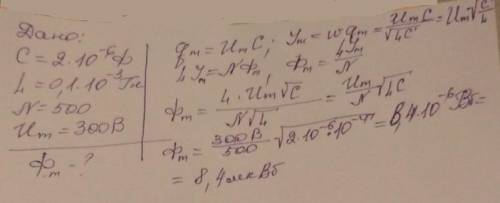 Дано:
C = 2·10⁻⁶Ф
L = 0,1·10⁻³Гн
N = 500
Um = 300В
Фm - ?
qm = UmC; Ym = wqm = UmC/√LC = Um√C/L
LYm = NФm, Фm = LYm/N
Фm = L·Um√C/N√L = Um/N √LC
Фm = 300В/500 √2·10⁻⁶·10⁻⁴ = 8,4·10⁻⁶Вб =
= 8,4мкВб